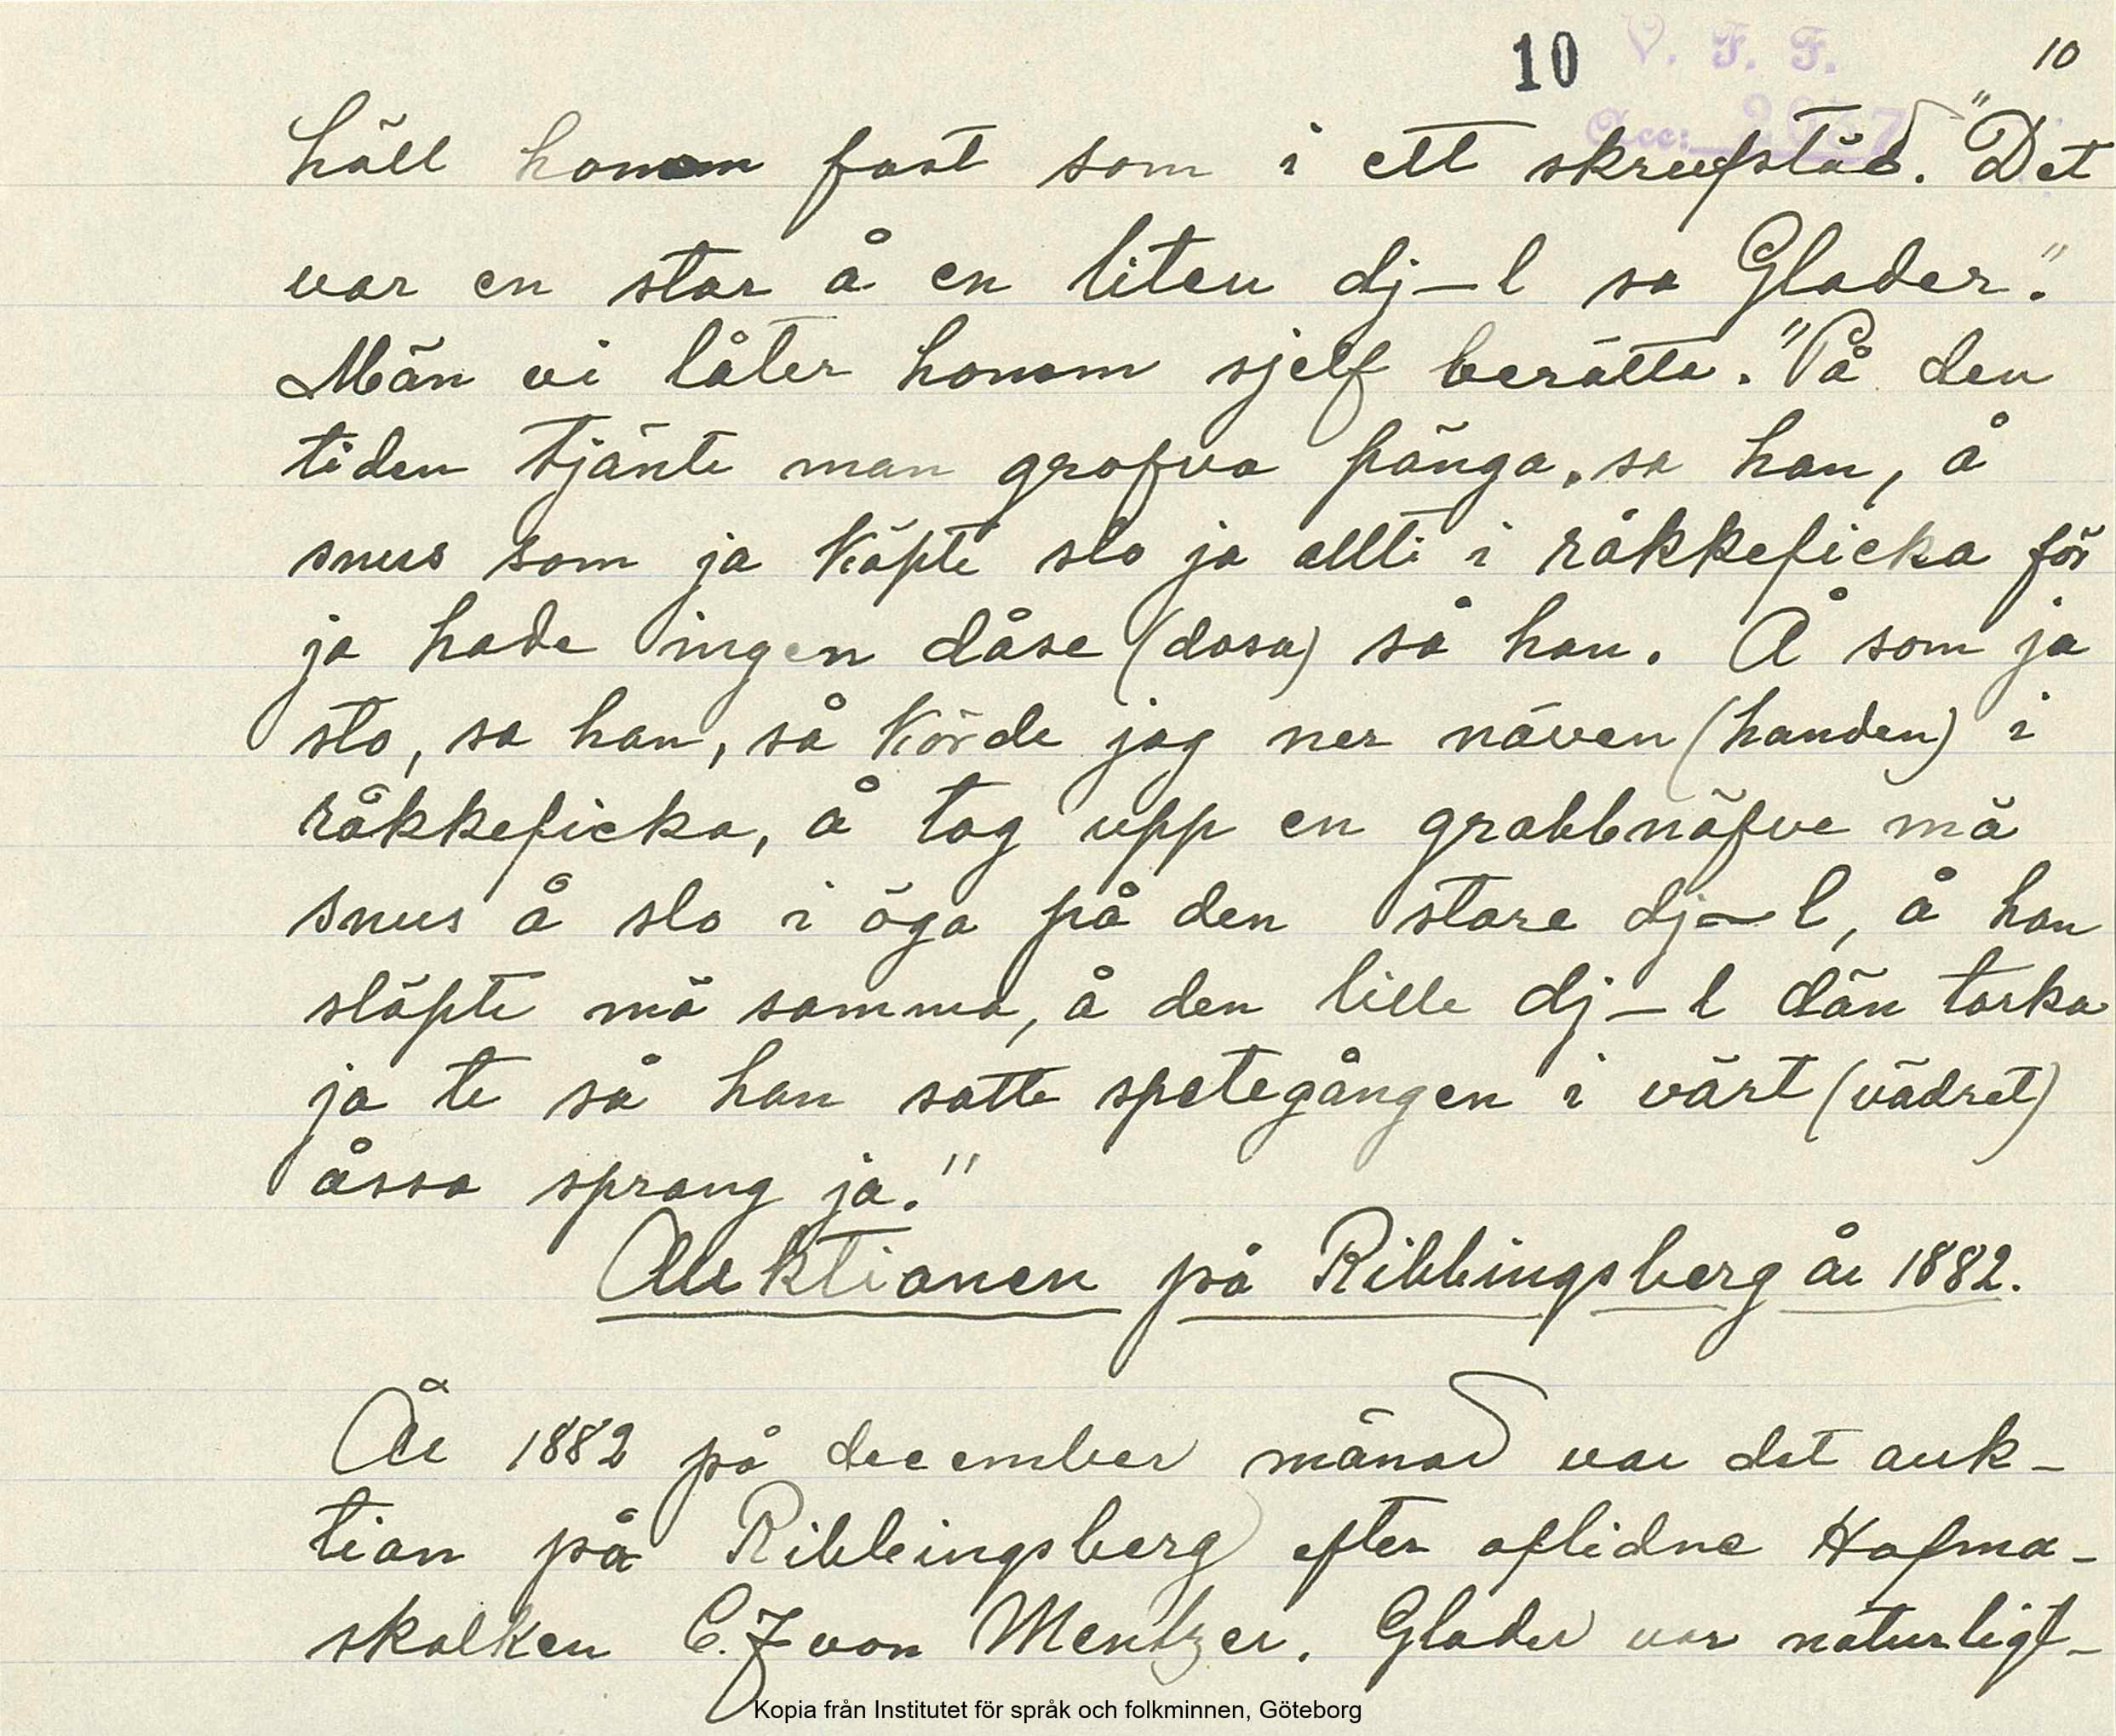 10 V. F. F. 10
Acc:
häll honom fast som i ett skrufstäd. "Det
var en stor å en liten dj—l sa Glader."
Män vi låter honom sjelf berätta. "På den
tiden tjänte man grofva pänga, sa han, å
snus som ja köpte slo ja allti i råkkeficka för
ja hade ingen dåse (dosa) sa han. Å som ja
sto, sa han, så körde jag ner näven (handen) i
råkkeficka, å tog upp en grabbnäfve mä
snus å slo i öga på den store dj—l, å han
släpte mä samma, å den lille dj—l dän torka
ja te så han satte spetegången i värt (vädret)
åssa sprang ja."
Auktionen på Ribbingsberg år 1882.
År 1882 på december månad var det auk-
tion på Ribbingsberg efter aflidne Hofma-
skalken C. F von Mentzer. Glader var naturligt-
Kopia från Institutet för språk och folkminnen, Göteborg